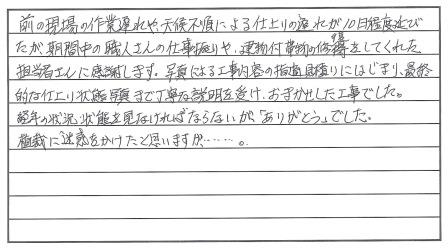 前の現場の作業遅れや、天候不順による仕上りの遅れが10日程度延び
たが期間中の職人さんの仕事振りや、建物付帯物の修繕をしてくれた
担当者さんに感謝します。写真による工事内容の指摘見積りにはじまり、最終
的な仕上り状態写真まで丁寧な説明を受け、おまかせした工事でした。
経年の状況、状態を見なければならないが、「ありがとう」でした。
植栽に迷惑をかけたと思いますが……。